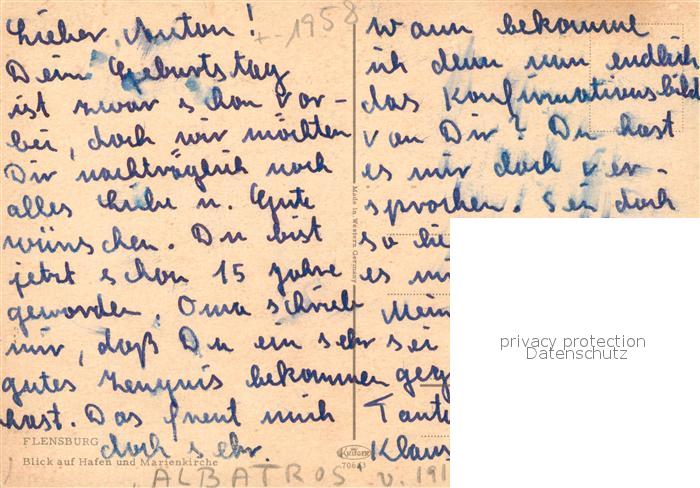 Lieber Anton!
+-1958
Dein Geburtstag
ist zwar schon vor-
bei, doch wir möchten
Dir nachträglich noch
alles Liebe u. Gute
wünschen. Du bist
jetzt schon 15 Jahre
geworden. Oma schrieb
mir, daß Du ein sehr
gutes Zeugnis bekommen
hast. Das freut mich
doch sehr.
FLENSBURG
Blick auf Hafen und Marienkirche
Made in Western Germany
KRÜGER
ALBATROS v. 191
wann bekomme
ich denn nun endlich
das Konfirmationsbild
von Dir? Du hast
es mir doch ver-
sprochen. Sei doch
so
es
Mein
sei
Tante
Klaus
privacy protection
Datenschutz